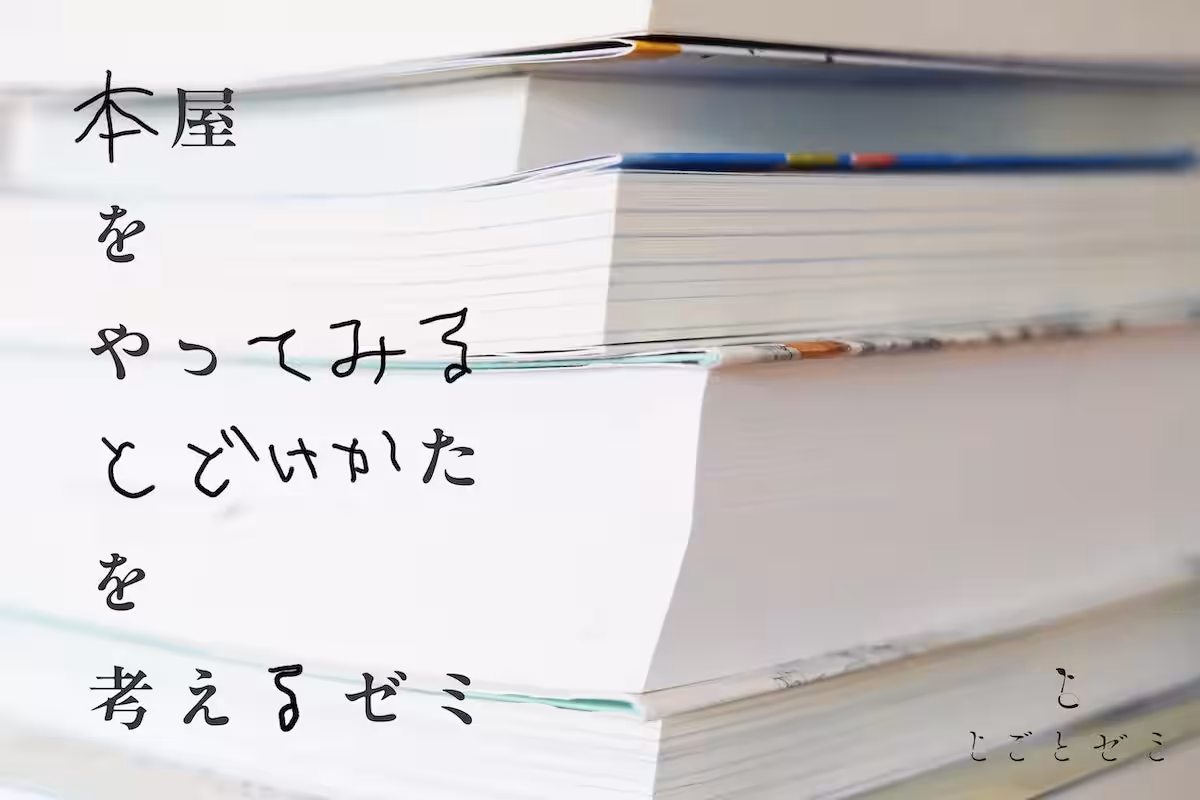 本屋
を
やってみる
とどけかた
を
考えるゼミ
と
とごとゼミ